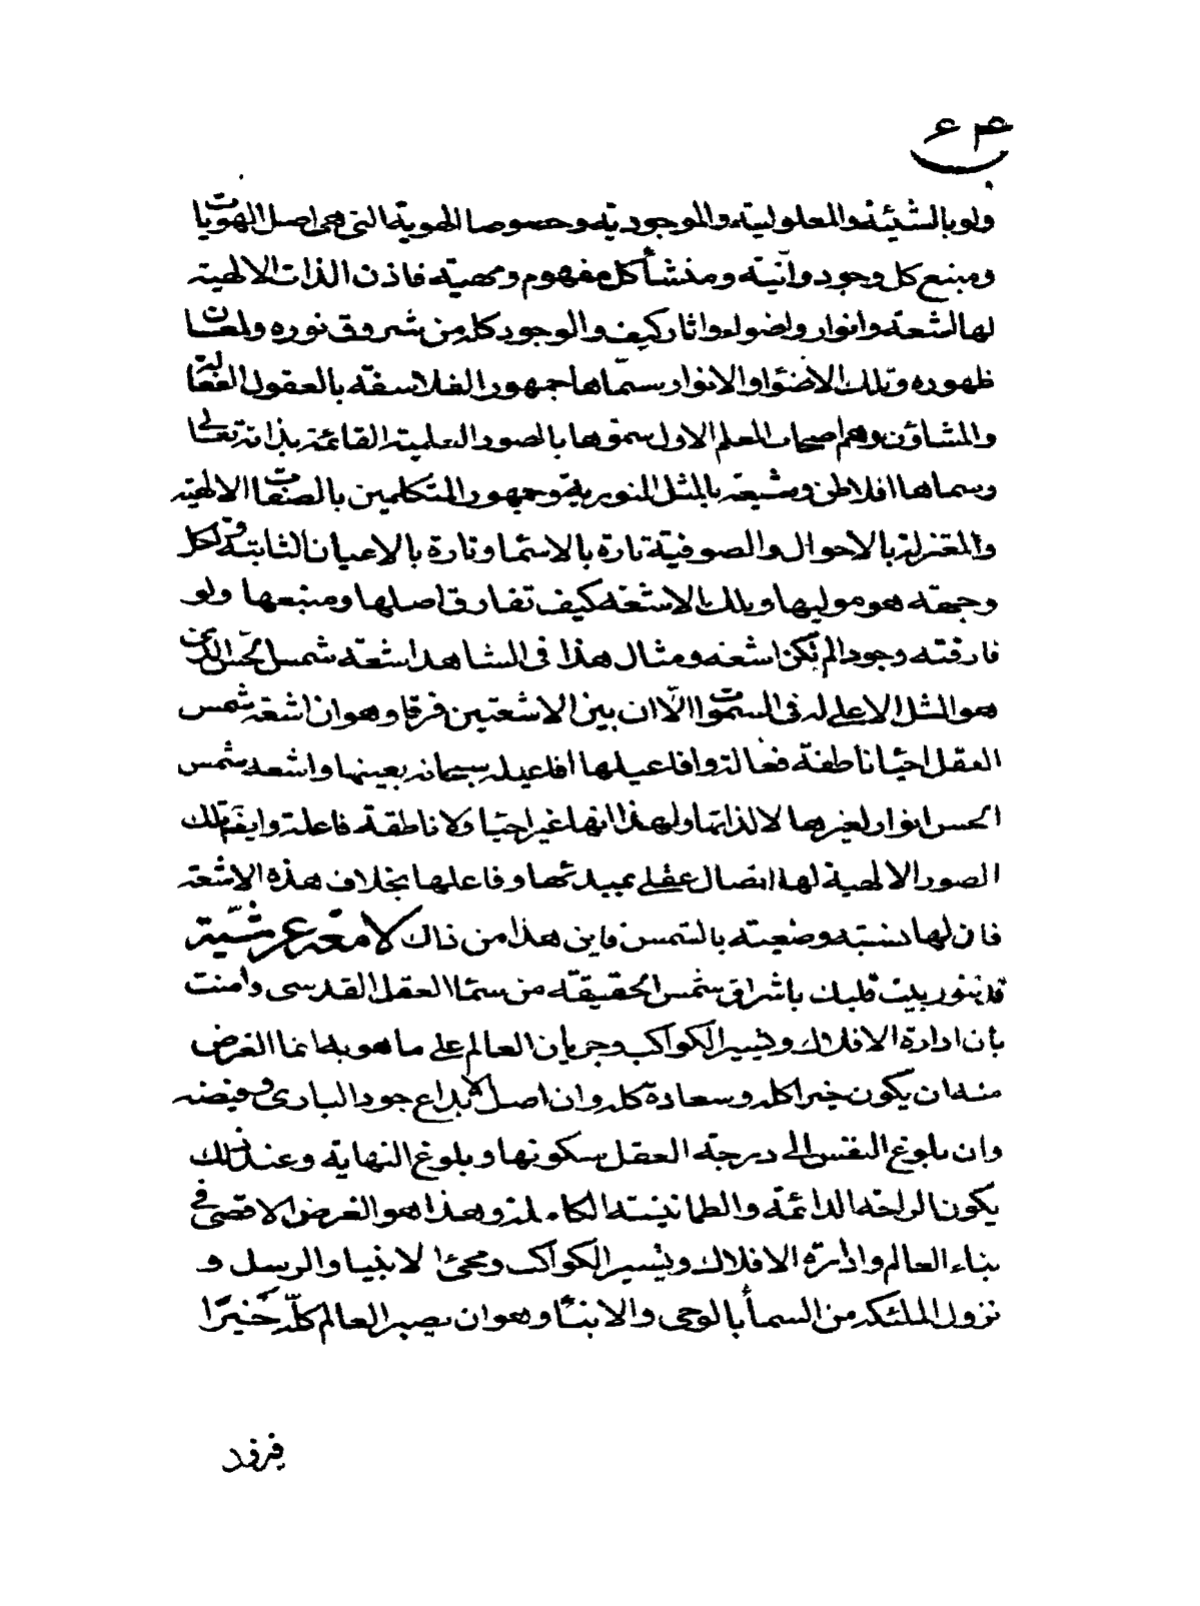 ۶۴
ولو بالشيئية والمعلولية والموجودية وخصوصا الهوية التى هى اصل الهويات
ومنبع كل وجود وآنية ومنشأ كل مفهوم ومهية فاذن الذات الالهية
لها اشعة وانوار واضواء واثار كيف والوجود كله من شروق نوره ولمعان
ظهوره وتلك الاضوٴا والانوار سمّاها جمهور الفلاسفة بالعقول الفعّالة
والمشاؤن وهم اصحاب المعلم الاول سموها بالصور العلمية القائمة بذاته تعالى
وسماها افلاطن وشيعته بالمثل النورية وجمهور المتكلمين بالصفات الالهية
والمعتزلة بالاحوال والصوفية تارة بالاسما وتارة بالاعيان الثابتة ولكل
وجهة هو موليها وتلك الاشعة كيف تفارق اصلها ومنبعها ولو
فارقته وجودا لم تكن اشعة ومثال هذا فى الشاهد اشعّة شمس الحسّ الذى
هو المثل الاعلى له فى السموات الّا ان بين الاشعتين فرقا وهو ان اشعة شمس
العقل احيا ناطقة فعالة وافاعيلها افاعيله سبحانه بعينها واشعة شمس
الحس انوار لغيرها لا لذاتها ولهذا انها غير احيا ولا ناطقة فاعلة وايضا تلك
الصور الالهية لها اتصال عقلى بمبدئها وفاعلها بخلاف هذه الاشعة
فان لها نسبة وضعية بالشمس فاين هذا من ذاك لامعة عرشيّة
قد تنور بيت قلبك باشراق شمس الحقيقة من سما العقل القدسى وامنت
بان ادارة الافلاك وتسيير الكواكب وجريان العالم على ما هو به انما الغرض
منه ان يكون خيرا كله وسعادة كله وان اصل الابداع جود البارى وفيضه
وان بلوغ النفس الى درجة العقل سكونها وبلوغ النهاية وعند ذلك
يكون الراحة الدائمة والطمانينة الكاملة وهذا هو الغرض الاقصى فى
بناء العالم وادارة الافلاك وتسيير الكواكب ومجئ الانبيا والرسل و
نزول الملئكة من السمأ بالوحى والانبٴا وهو ان يصير العالم كلّه خَيرًا